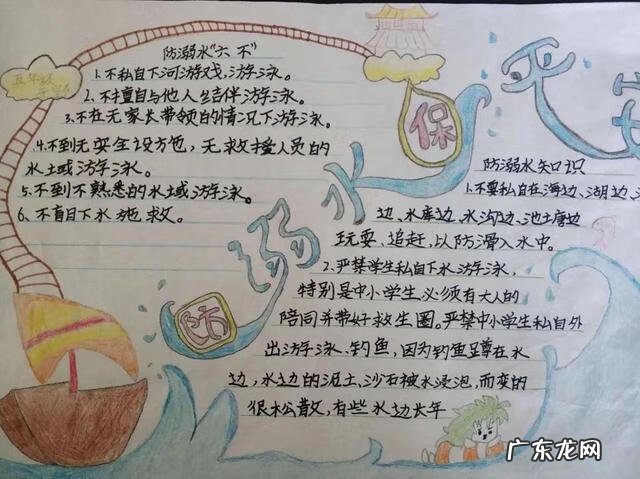 五年级
防溺水“六不”
1.不私自下河游戏,游泳。
2.不擅自与他人结伴游泳。
3.不在无家长带领的情况下游泳。
4.不到无安全设施,无救援人员的
水域游泳。
5.不到不熟悉的水域游泳。
6.不盲目下水施救。
防溺水
保平安
防溺水知识
1.不要私自在海边、湖边、
边、水库边、水沟边、池塘边
玩耍、追赶,以防滑入水中。
2.严禁学生私自下水游泳,
特别是中小学生必须有大人的
陪同并带好救生圈。严禁中小学生私自外
出游泳、钓鱼,因为钓鱼蹲在水
边,水边的泥土、沙石被水浸泡,而变的
很松散,有些水边长年
广东龙网